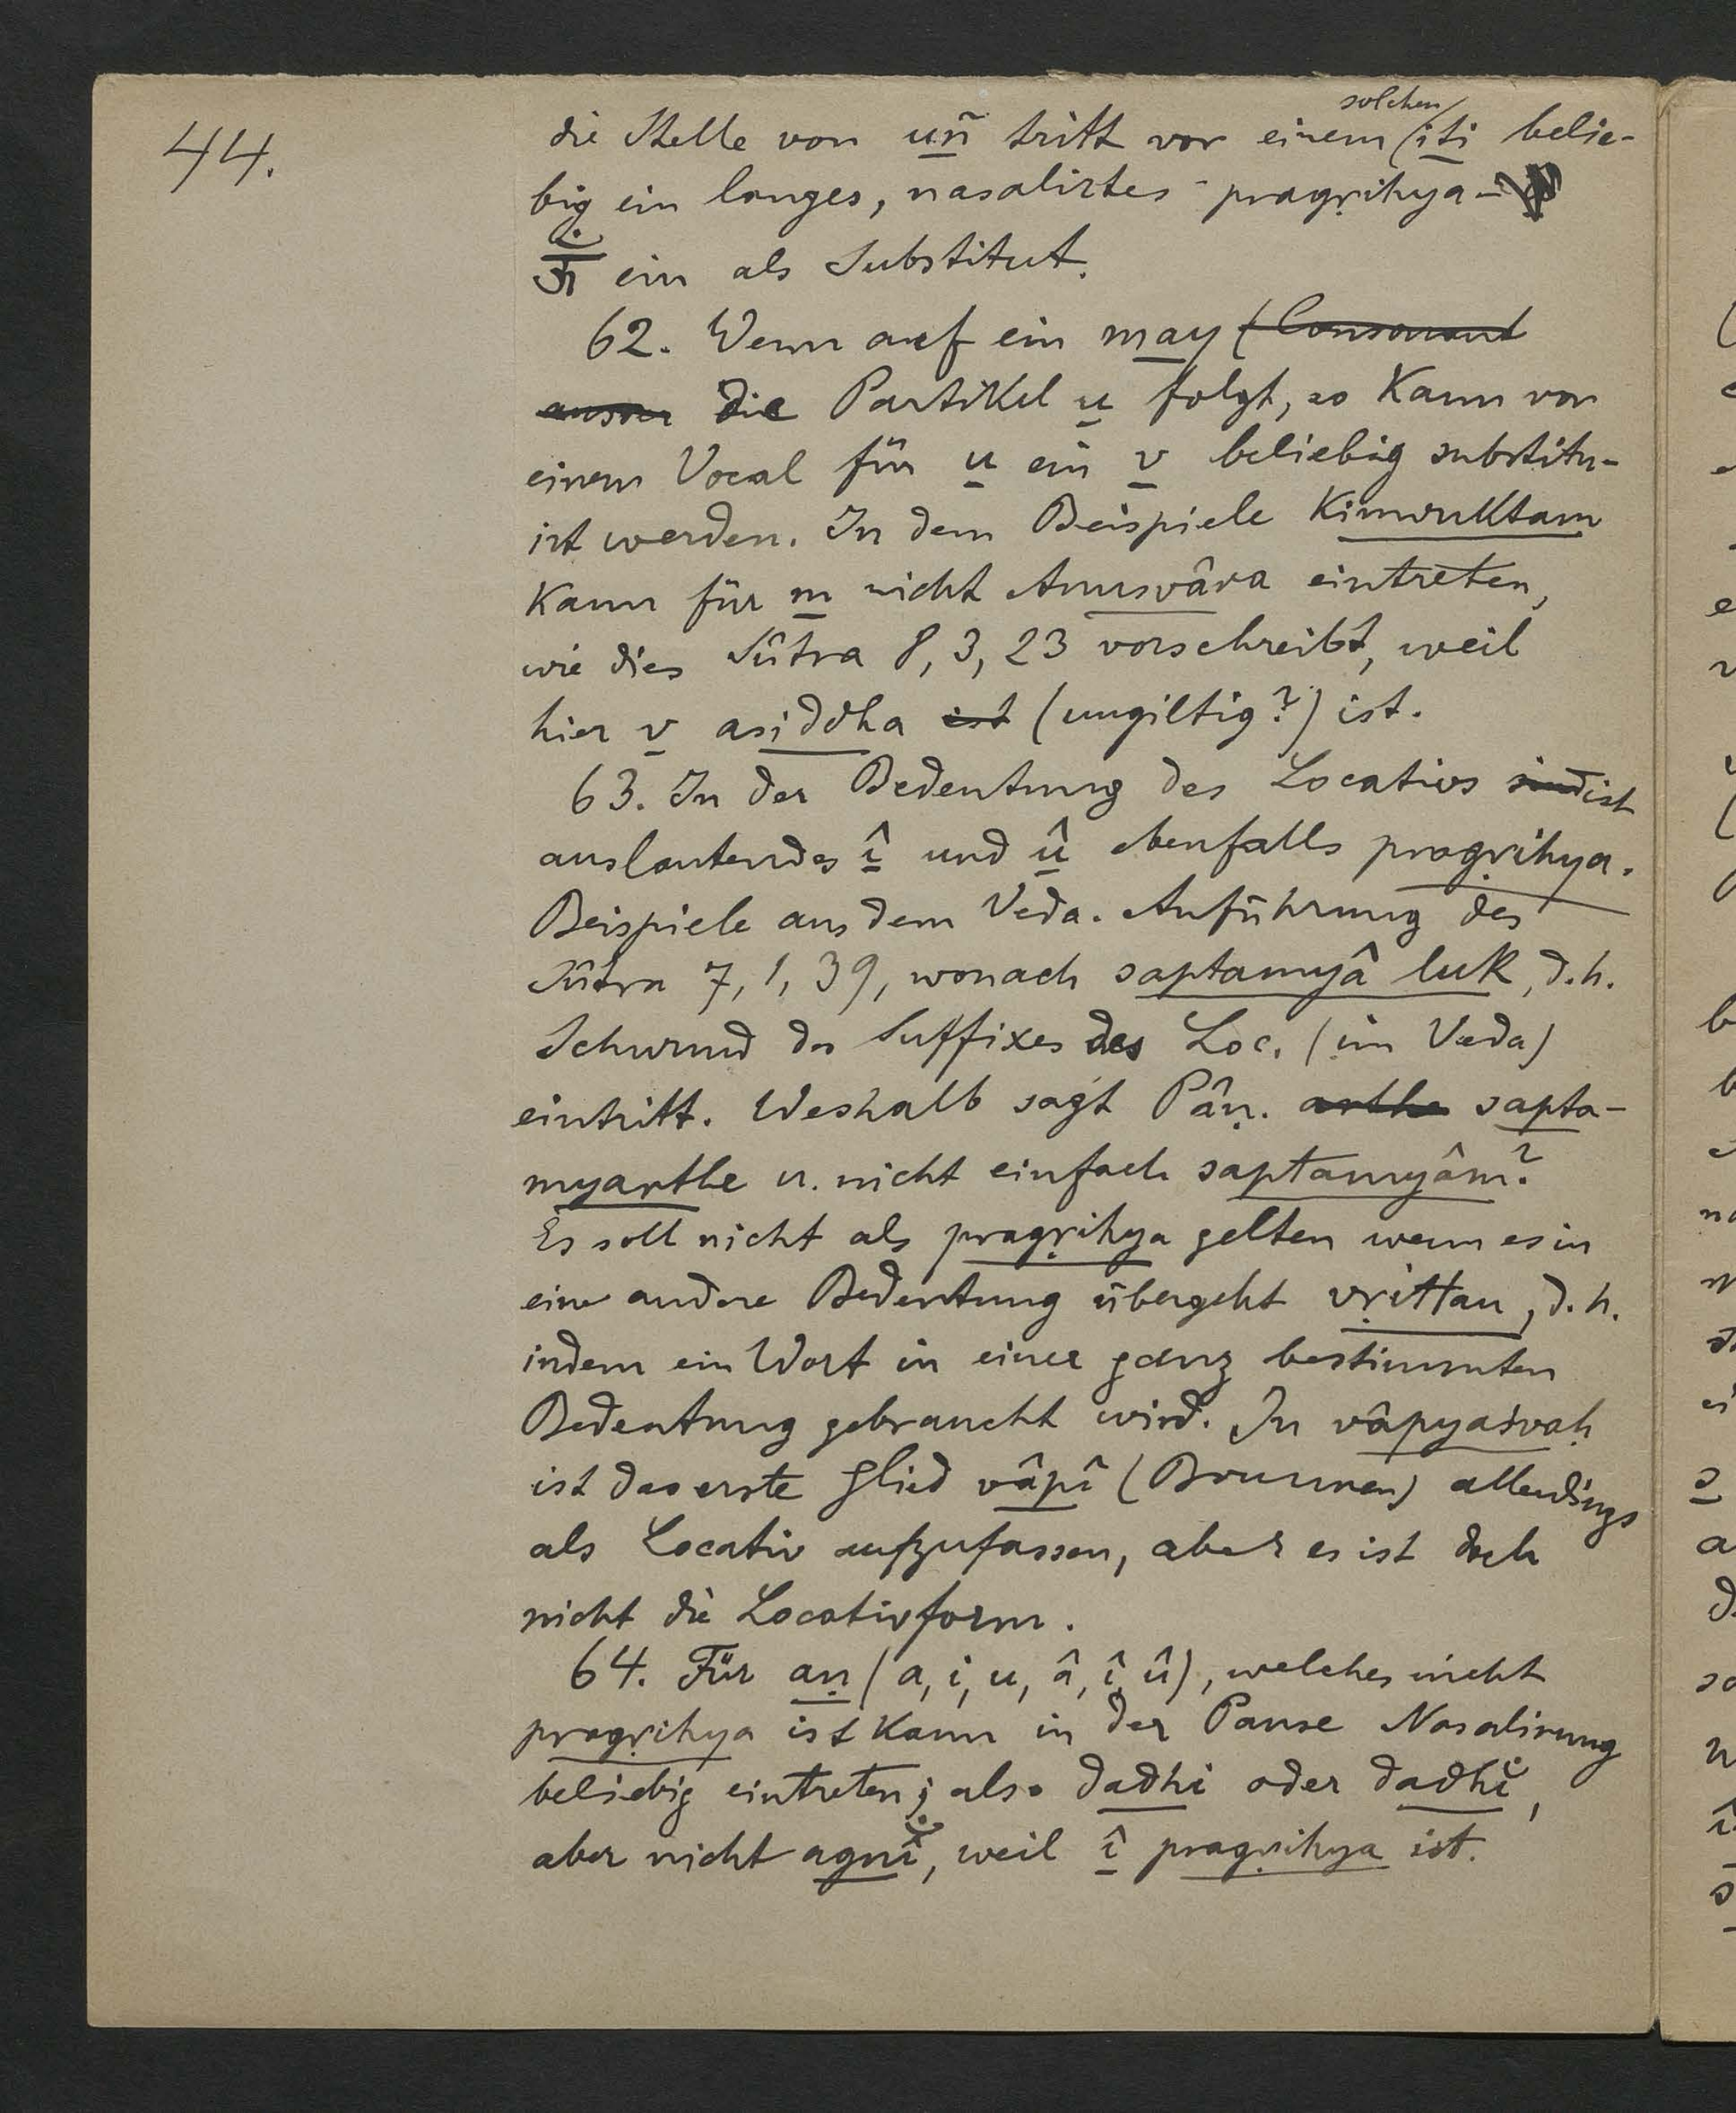 44.
die Stelle von uñ tritt vor einem solchen iti belie-
big ein langes, nasalirtes pragṛihya-
ऊँ ein als Substitut.
62. Wenn auf ein may (Consonant
ausser die Partikel u folgt, so kann vor
einem Vocal für u ein v beliebig substitu-
irt werden. In dem Beispiele Kimvuktam
kann für m nicht Anusvâra eintreten,
wie dies Sûtra 8, 3, 23 vorschreibt, weil
hier v asiddha ist (ungiltig?) ist.
63. In der Bedeutung des Locativs sind ist
auslautendes î und û ebenfalls pragṛihya.
Beispiele aus dem Veda. Anführung des
Sûtra 7, 1, 39, wonach saptamyâ luk, d.h.
Schwund des Suffixes des Loc. (im Veda)
eintritt. Weshalb sagt Pâṇ. arthe sapta-
myarthe u. nicht einfach saptamyâm?
Es soll nicht als pragṛihya gelten wenn es in
eine andere Bedeutung übergeht vṛittau, d.h.
indem ein Wort in einer ganz bestimmten
Bedeutung gebraucht wird. In vâpyaśvaḥ
ist das erste Glied vâpî (Brunnen) allerdings
als Locativ aufzufassen, aber es ist doch
nicht die Locativform.
64. Für aṇ (a, i, u, â, î, û), welches nicht
pragṛihya ist kann in der Pause Nasalirung
beliebig eintreten; also dadhi oder dadhi̐,
aber nicht agnî̐, weil î pragṛihya ist.